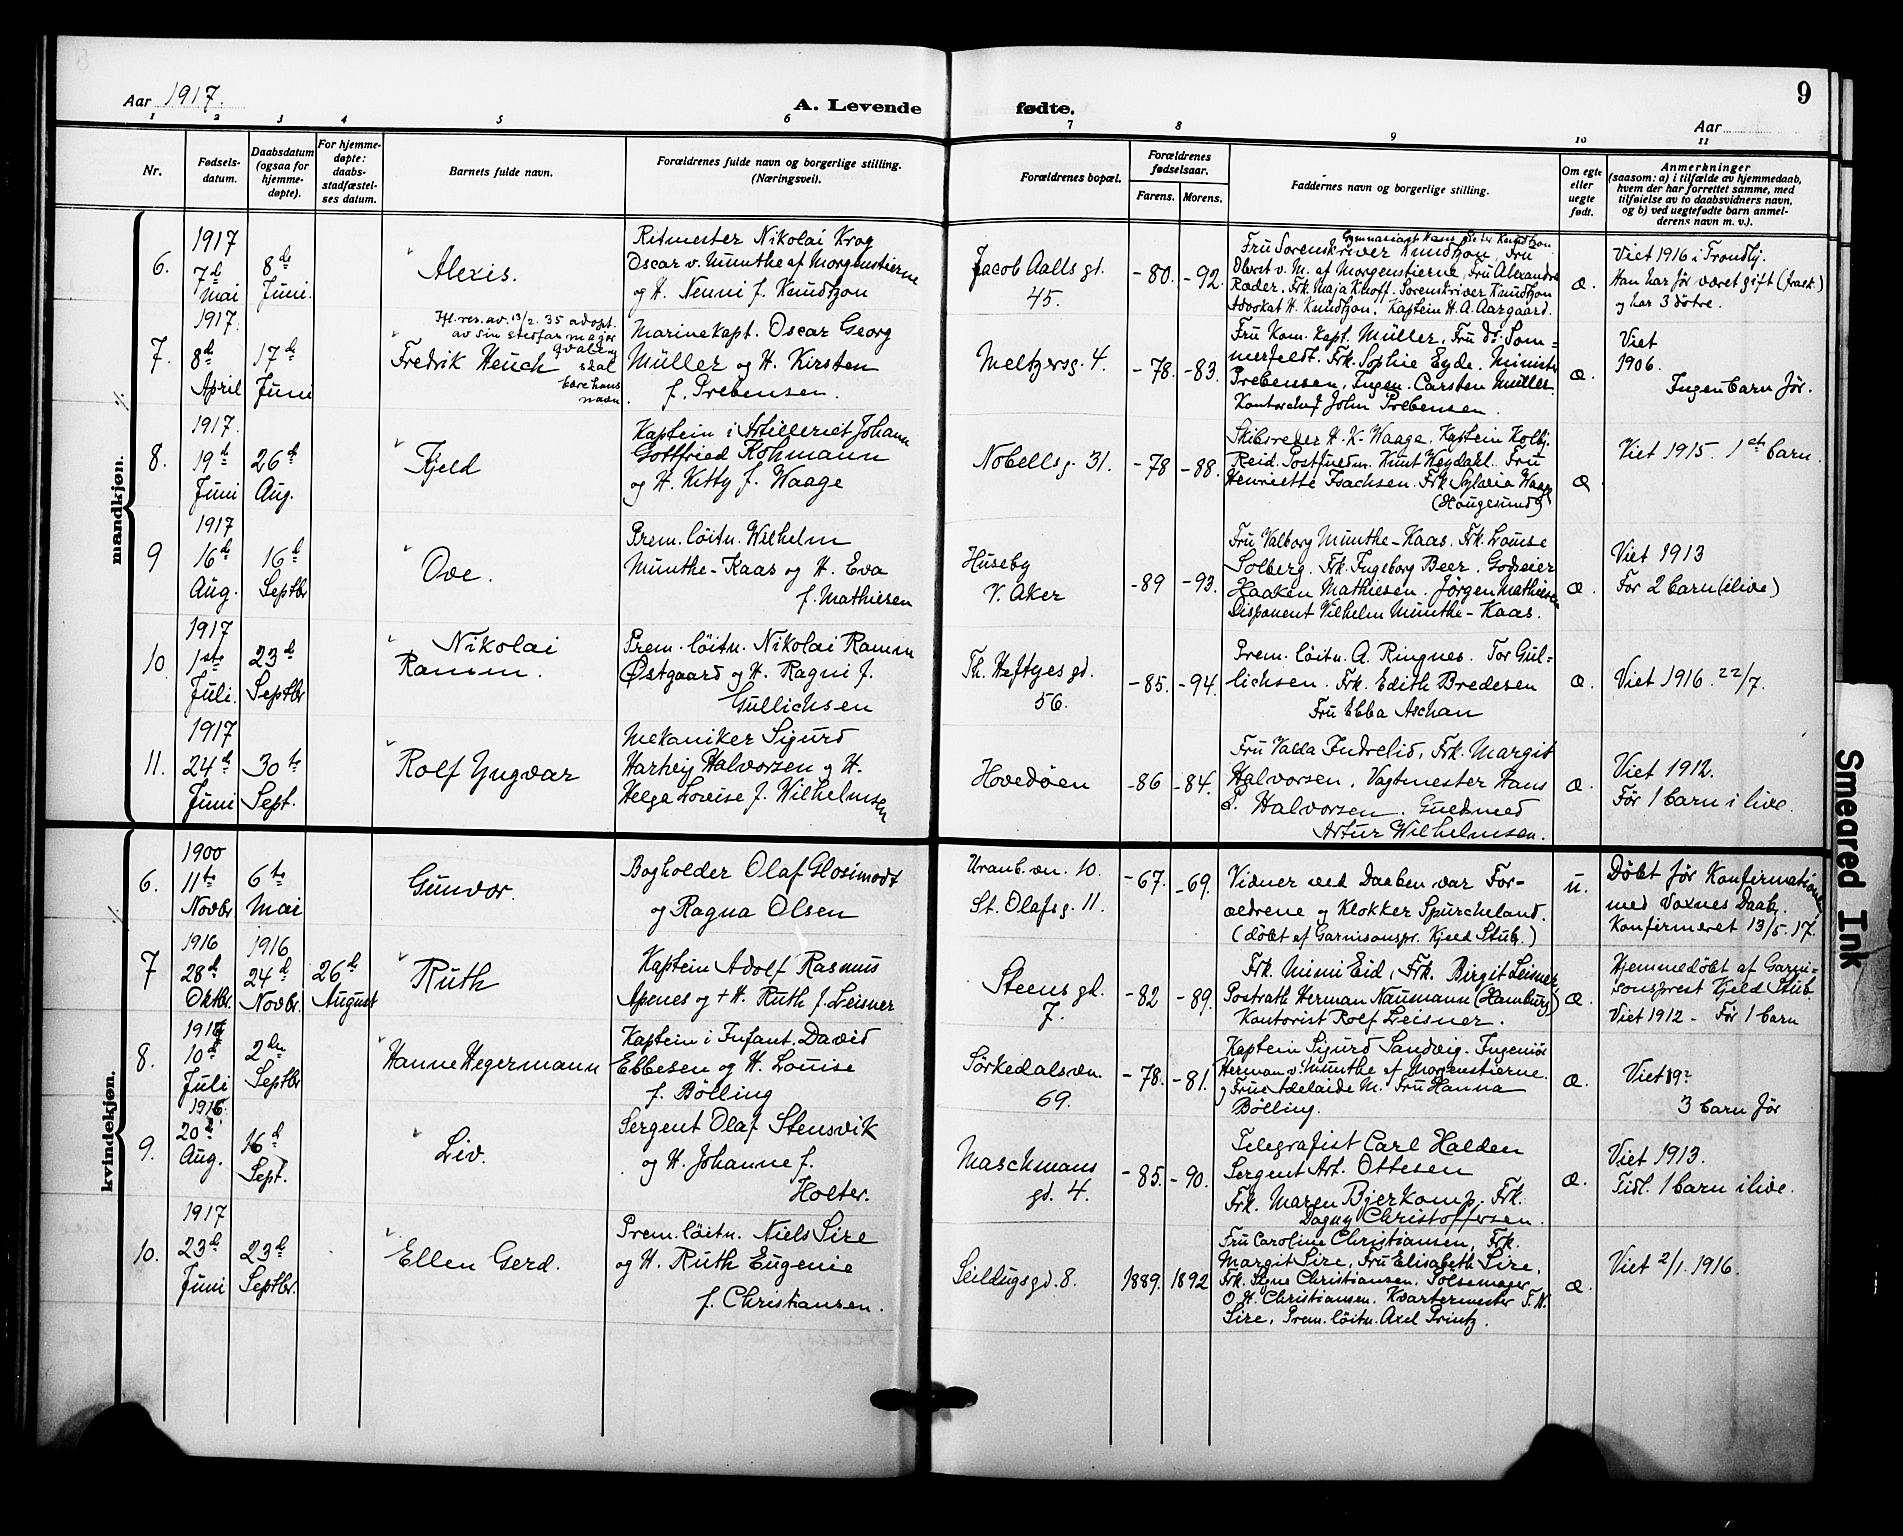 Aar 1917.
A. Levende fødte.
9
Aar
1 2 3 4 5 6 7 8 9 10 11
Nr.
Fødsels-
datum.
Daabsdatum
(ogsaa for
hjemme-
døpte).
For hjemme-
døpte:
daabs-
stadfæstel-
ses datum.
Barnets fulde navn.
Forældrenes fulde navn og borgerlige stilling.
(Næringsvei).
Forældrenes bopæl.
Forældrenes
fødselsaar.
Farens. Morens.
Faddernes navn og borgerlige stilling.
Om egte
eller
uegte
født.
Anmerkninger
(saasom: a) i tilfælde av hjemmedaab,
hvem der har forrettet samme, med
tilføielse av to daabsvidners navn,
og b) ved uegtefødte barn anmel-
derens navn m. v.).
mandkjøn.
6.
1917
7d
Mai
8de
Juni.
Alexis.
Ritmester Nikolai Krag
Oscar v. Munthe af Morgenstierne
og H. Nenni f. Knudtzon
Jacob Aalls gt.
45.
-80. -92.
Gymnasiast Hans Peter Knudtzon
Fru Sorenskriver Knudtzon, Fru
Oberst v. M. af Morgenstierne, Fru Alexandra
Ræder. Frk. Maja Knoff. Sorenskriver Knudtzon
Advokat H. Knudtzon. Kaptein H. A. Aargaard.
æ.
Viet 1916 i Trondhj.
Han har før været gift (frask.)
og har 3 døtre.
7.
1917.
8d
April
17de
Juni
Kfl. res. av 13/2. 35 adopt.
av sin stedfar major
Qvale
skal
bære hans
navn
Fredrik Heuch
Marinekapt. Oscar Georg
Müller og H. Kirsten
f. Prebensen.
Meltzersg. 4.
-78. -83.
Fru Kom. Kapt. Müller, Fru Dr. Som-
merfeldt. Frk. Sophie Eyde. Minister
Prebensen, Ingen. Carsten Müller
Kontorchef John Prebensen.
æ.
Viet
1906.
Ingen barn før.
8.
1917.
19d
Juni
26d
Aug.
Kjeld
Kaptein i Artilleriet Johann
Gottfried Rohmann
og H. Kitty f. Waage
Nobellsg. 31.
-78 -88.
Skibsreder H. K. Waage, Kaptein Kolbj.
Reid. Postfuldm. Knut Heydahl. Fru
Henriette Isachsen. Frk Sylvia Waage
(Haugesund)
æ
Viet 1915. 1et barn.
9
1917
16d
Aug.
16d
Septbr
Ove.
Prem. løitn. Wilhelm
Munthe-Kaas og H. Eva
f. Mathiesen
Huseby
V. Aker
-89 -93.
Fru Valborg Munthe-Kaas. Frk. Louise
Solberg. Frk. Ingeborg Beer. Godseier
Haaken Mathiesen. Jørgen Mathiesen
Disponent Vilhelm Munthe-Kaas.
æ.
Viet 1913
Før 2 barn (ilive)
10
1917
1ste
Juli.
23d
Septbr
Nikolai
Ramm.
Prem. løitn. Nikolai Ramm
Østgaard og H. Ragni f.
Gullichsen
Th. Heftyes gd.
56.
-85. -94.
Prem. løitn. A. Ringnes. Tor Gul=
lichsen. Frk. Edith Bredesen
Fru Ebba Aschan
æ.
Viet 1916. 22/7.
11.
1917
24d
Juni
30te
Sept.
Rolf Yngvar
Mekaniker Sigurd
Hartvig Halvorsen og H.
Helga Lovise f. Wilhelmsen
Hovedøen
-86 -84.
Fru Valda Indrelid, Frk. Margit
Halvorsen, Vagtmester Hans
L. Halvorsen. Guldsmed
Artur Wilhelmsen.
æ.
Viet 1912.
Før 1 barn i live.
kvindekjøn.
6.
1900
11te
Novbr
6te
Mai
Gunvor.
Bogholder Olaf Glosimodt
og Ragna Olsen
Uranb. vn. 10.
St. Olafsg. 11.
-67. -69.
Vidner ved Daaben var For-
ældrene og Klokker Spurcheland.
(døbt af Garnisonspr. Kjeld Stub.)
u.
Døbt før Konfirmationen
med Voxnes Daab.
Konfirmeret 13/5. 17.
7
1916
28d
Oktbr.
1916
24d
Novbr.
26d
August
Ruth
Kaptein Adolf Rasmus
Apenes og + H. Ruth f. Leisner
Steens gd.
7.
-82 -89.
Frk. Mimi Eid, Frk. Birgit Leisner,
Postrath Herman Naumann (Hamburg)
Kontorist Rolf Leisner.
æ.
Hjemmedøbt af Garni=
sonsprest Kjeld Stub.
Viet 1912 - Før 1 barn
8.
1917
10d
Juli
2den
Septbr
Hanne Hegermann
Kaptein i Infant. David
Ebbesen og H. Louise
f. Bølling
Sørkedalsvn.
69.
-78. -81.
Kaptein Sigurd Sandvig. Ingeniør
Herman v. Munthe af Morgenstierne.
og Frue Adelaide M. Fru Hanna
Bølling.
æ.
Viet 19?
3 barn før
9.
1916.
20d
Aug.
16d
Sept.
Liv.
Sergent Olaf Stensvik
og H. Johanne f.
Holter.
Maschmans
gd. 4.
-85. -90.
Telegrafist Carl Halden
Sergent Art. Ottesen
Frk. Maren Bjerkamp. Frk.
Dagny Christoffersen.
æ.
Viet 1913.
Tidl. 1 barn ilive.
10.
1917
23d
Juni
23d
Septbr.
Ellen Gerd.
Prem. løitn. Niels Lire
og H. Ruth Eugenie
f. Christiansen.
Seildugsgd. 8.
1889. 1892
Fru Caroline Christiansen, Frk.
Margit Lire, Fru Elisabeth Lire,
Frk. Signe Christiansen. Pølsemager
O. H. Christiansen. Kvartermester T. N.
Lire, Prem. løitn. Axel Printz.
æ.
Viet 2/1. 1916.
Smeared Ink